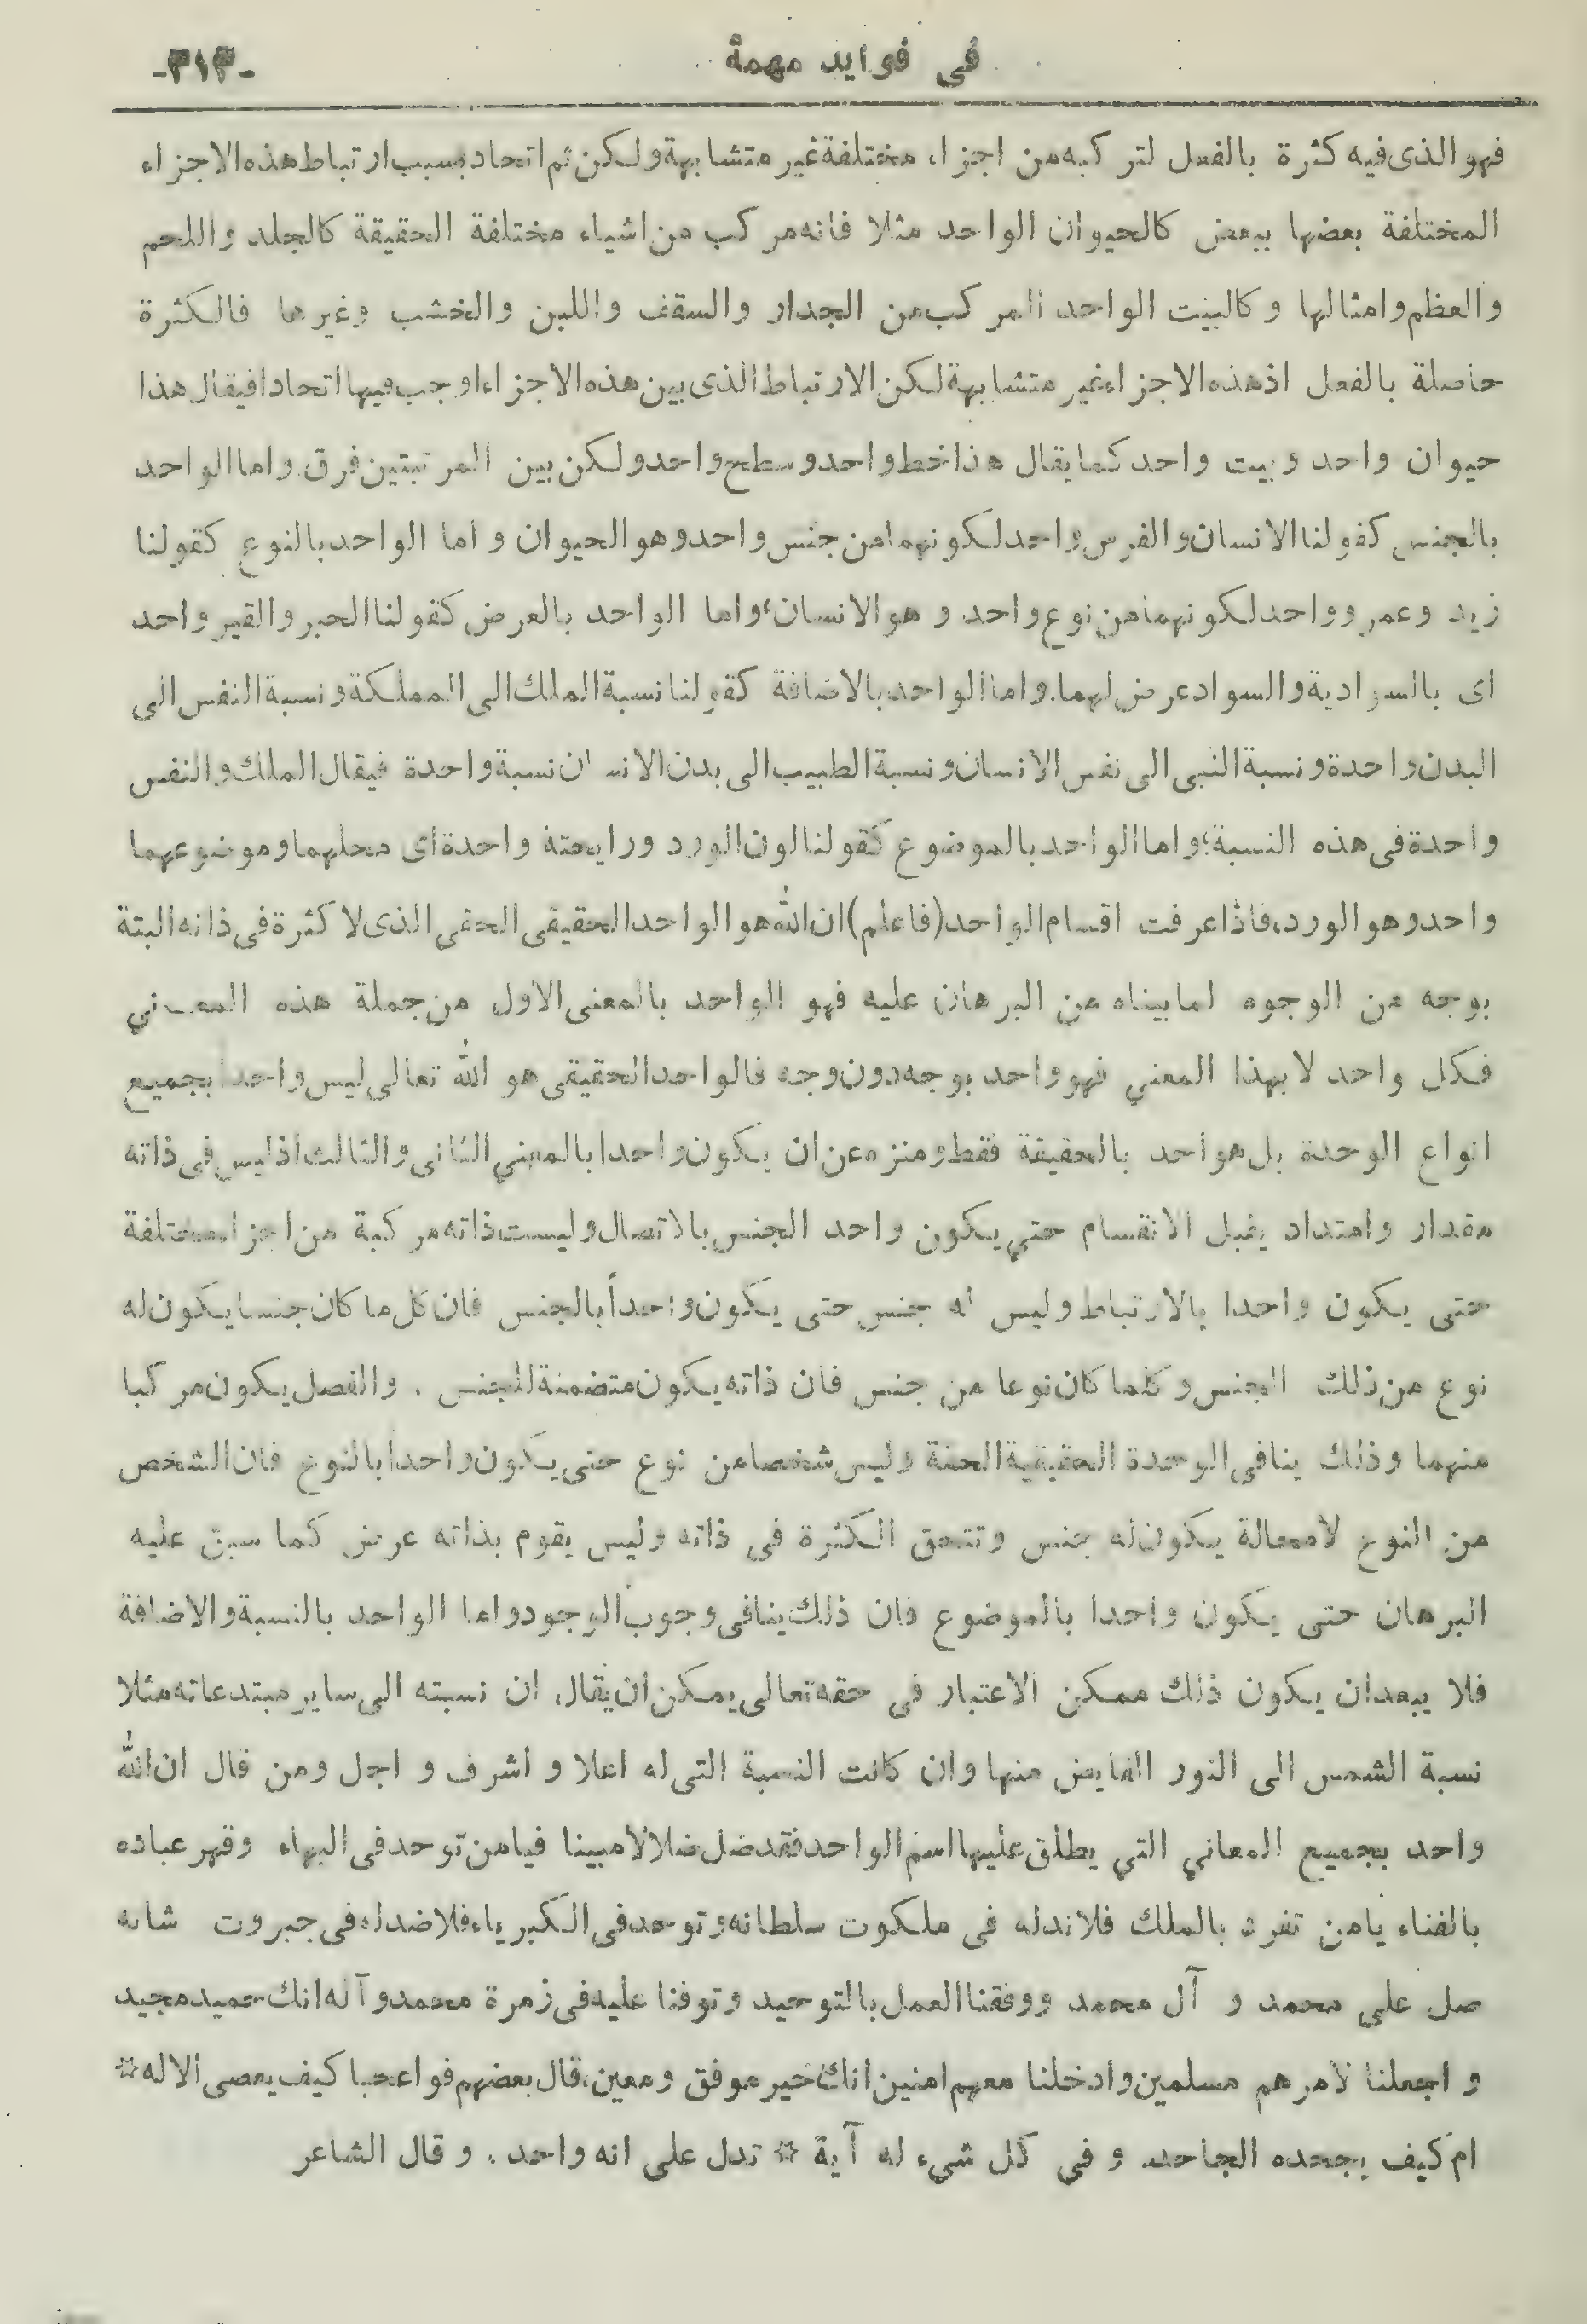 فى فوايد مهمة -٣١٣-
فهو الذى فيه كثرة بالفعل لتركبه من اجزاء مختلفة غير متشابهة ولكن ثم اتحاد بسبب ارتباط هذه الاجزاء
المختلفة بعضها ببعض كالحيوان الواحد مثلا فانه مركب من اشياء مختلفة الحقيقة كالجلد واللحم
والعظم وامثالها وكالبيت الواحد المركب من الجدار والسقف واللبن والخشب وغيرها فالكثرة
حاصلة بالفعل اذ هذه الاجزاء غير متشابهة لكن الارتباط الذى بين هذه الاجزاء اوجب فيها اتحادا فيقال هذا
حيوان واحد وبيت واحد كما يقال هذا خط واحد وسطح واحد ولكن بين المرتبتين فرق. واما الواحد
بالجنس كقولنا الانسان والفرس واحد لكونهما من جنس واحد وهو الحيوان و اما الواحد بالنوع كقولنا
زيد وعمرو واحد لكونهما من نوع واحد و هو الانسان؛ واما الواحد بالعرض كقولنا الحبر والقير واحد
اى بالسوادية والسواد عرض لهما. واما الواحد بالاضافة كقولنا نسبة الملك الى المملكة ونسبة النفس الى
البدن واحدة ونسبة النبى الى نفس الانسان ونسبة الطبيب الى بدن الانسان نسبة واحدة فيقال الملك والنفس
واحدة فى هذه النسبة؛ واما الواحد بالموضوع كقولنا لون الورد ورايحته واحدة اى محلهما وموضوعهما
واحد وهو الورد، فاذا عرفت اقسام الواحد (فاعلم) ان الله هو الواحد الحقيقى الحقى الذى لا كثرة فى ذاته البتة
بوجه من الوجوه لما بيناه من البرهان عليه فهو الواحد بالمعنى الاول من جملة هذه المعانى
فكل واحد لا بهذا المعني فهو واحد بوجه دون وجه فالواحد الحقيقى هو الله تعالى ليس واحدا بجميع
انواع الوحدة بل هو احد بالحقيقة فقط ومنزه عن ان يكون واحدا بالمعني الثانى والثالث اذ ليس فى ذاته
مقدار وامتداد يقبل الانقسام حتي يكون واحد الجنس بالاتصال وليست ذاته مركبة من اجزاء مختلفة
حتى يكون واحدا بالارتباط وليس له جنس حتى يكون واحداً بالجنس فان كل ما كان جنسا يكون له
نوع من ذلك الجنس وكلما كان نوعا من جنس فان ذاته يكون متضمنة للجنس . والفصل يكون مركبا
منهما وذلك ينافى الوحدة الحقيقية الحقة وليس شخصا من نوع حتى يكون واحدا بالنوع فان الشخص
من النوع لا محالة يكون له جنس وتتحق الكثرة فى ذاته وليس يقوم بذاته عرض كما سبق عليه
البرهان حتى يكون واحدا بالموضوع فان ذلك ينافى وجوب الوجود واما الواحد بالنسبة والاضافة
فلا يبعد ان يكون ذلك ممكن الاعتبار فى حقه تعالى يمكن ان يقال، ان نسبته الى ساير مبتدعاته مثلا
نسبة الشمس الى النور الفايض منها وان كانت النسبة التى له اعلا و اشرف و اجل ومن قال ان الله
واحد بجميع المعاني التي يطلق عليها اسم الواحد فقد ضل ضلالا مبينا فيامن توحد فى البهاء وقهر عباده
بالفناء يامن تفرد بالملك فلا ند له فى ملكوت سلطانه وتوحد فى الكبرياء فلا ضد له فى جبروت شانه
صل على محمد و آل محمد ووفقنا العمل بالتوحيد وتوفنا عليه فى زمرة محمد وآله انك حميد مجيد
و اجعلنا لامرهم مسلمين وادخلنا معهم امنين انك خير موفق ومعين، قال بعضهم فواعجبا كيف يعصى الاله ☆
ام كيف يجحده الجاحد. و في كل شيء له آية ☆ تدل على انه واحد . و قال الشاعر